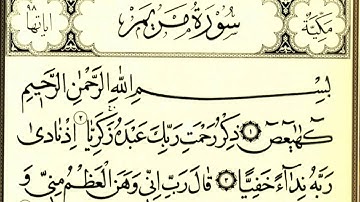 مكية سورة مريم آياتها ٩٨
بسم الله الرحمن الرحيم
كٓهيعٓصٓ ١ ذِكْرُ رَحْمَتِ رَبِّكَ عَبْدَهُ زَكَرِيَّا ٢ إِذْ نَادَىٰ
رَبَّهُ نِدَاءً خَفِيًّا ٣ قَالَ رَبِّ إِنِّي وَهَنَ الْعَظْمُ مِنِّي وَ